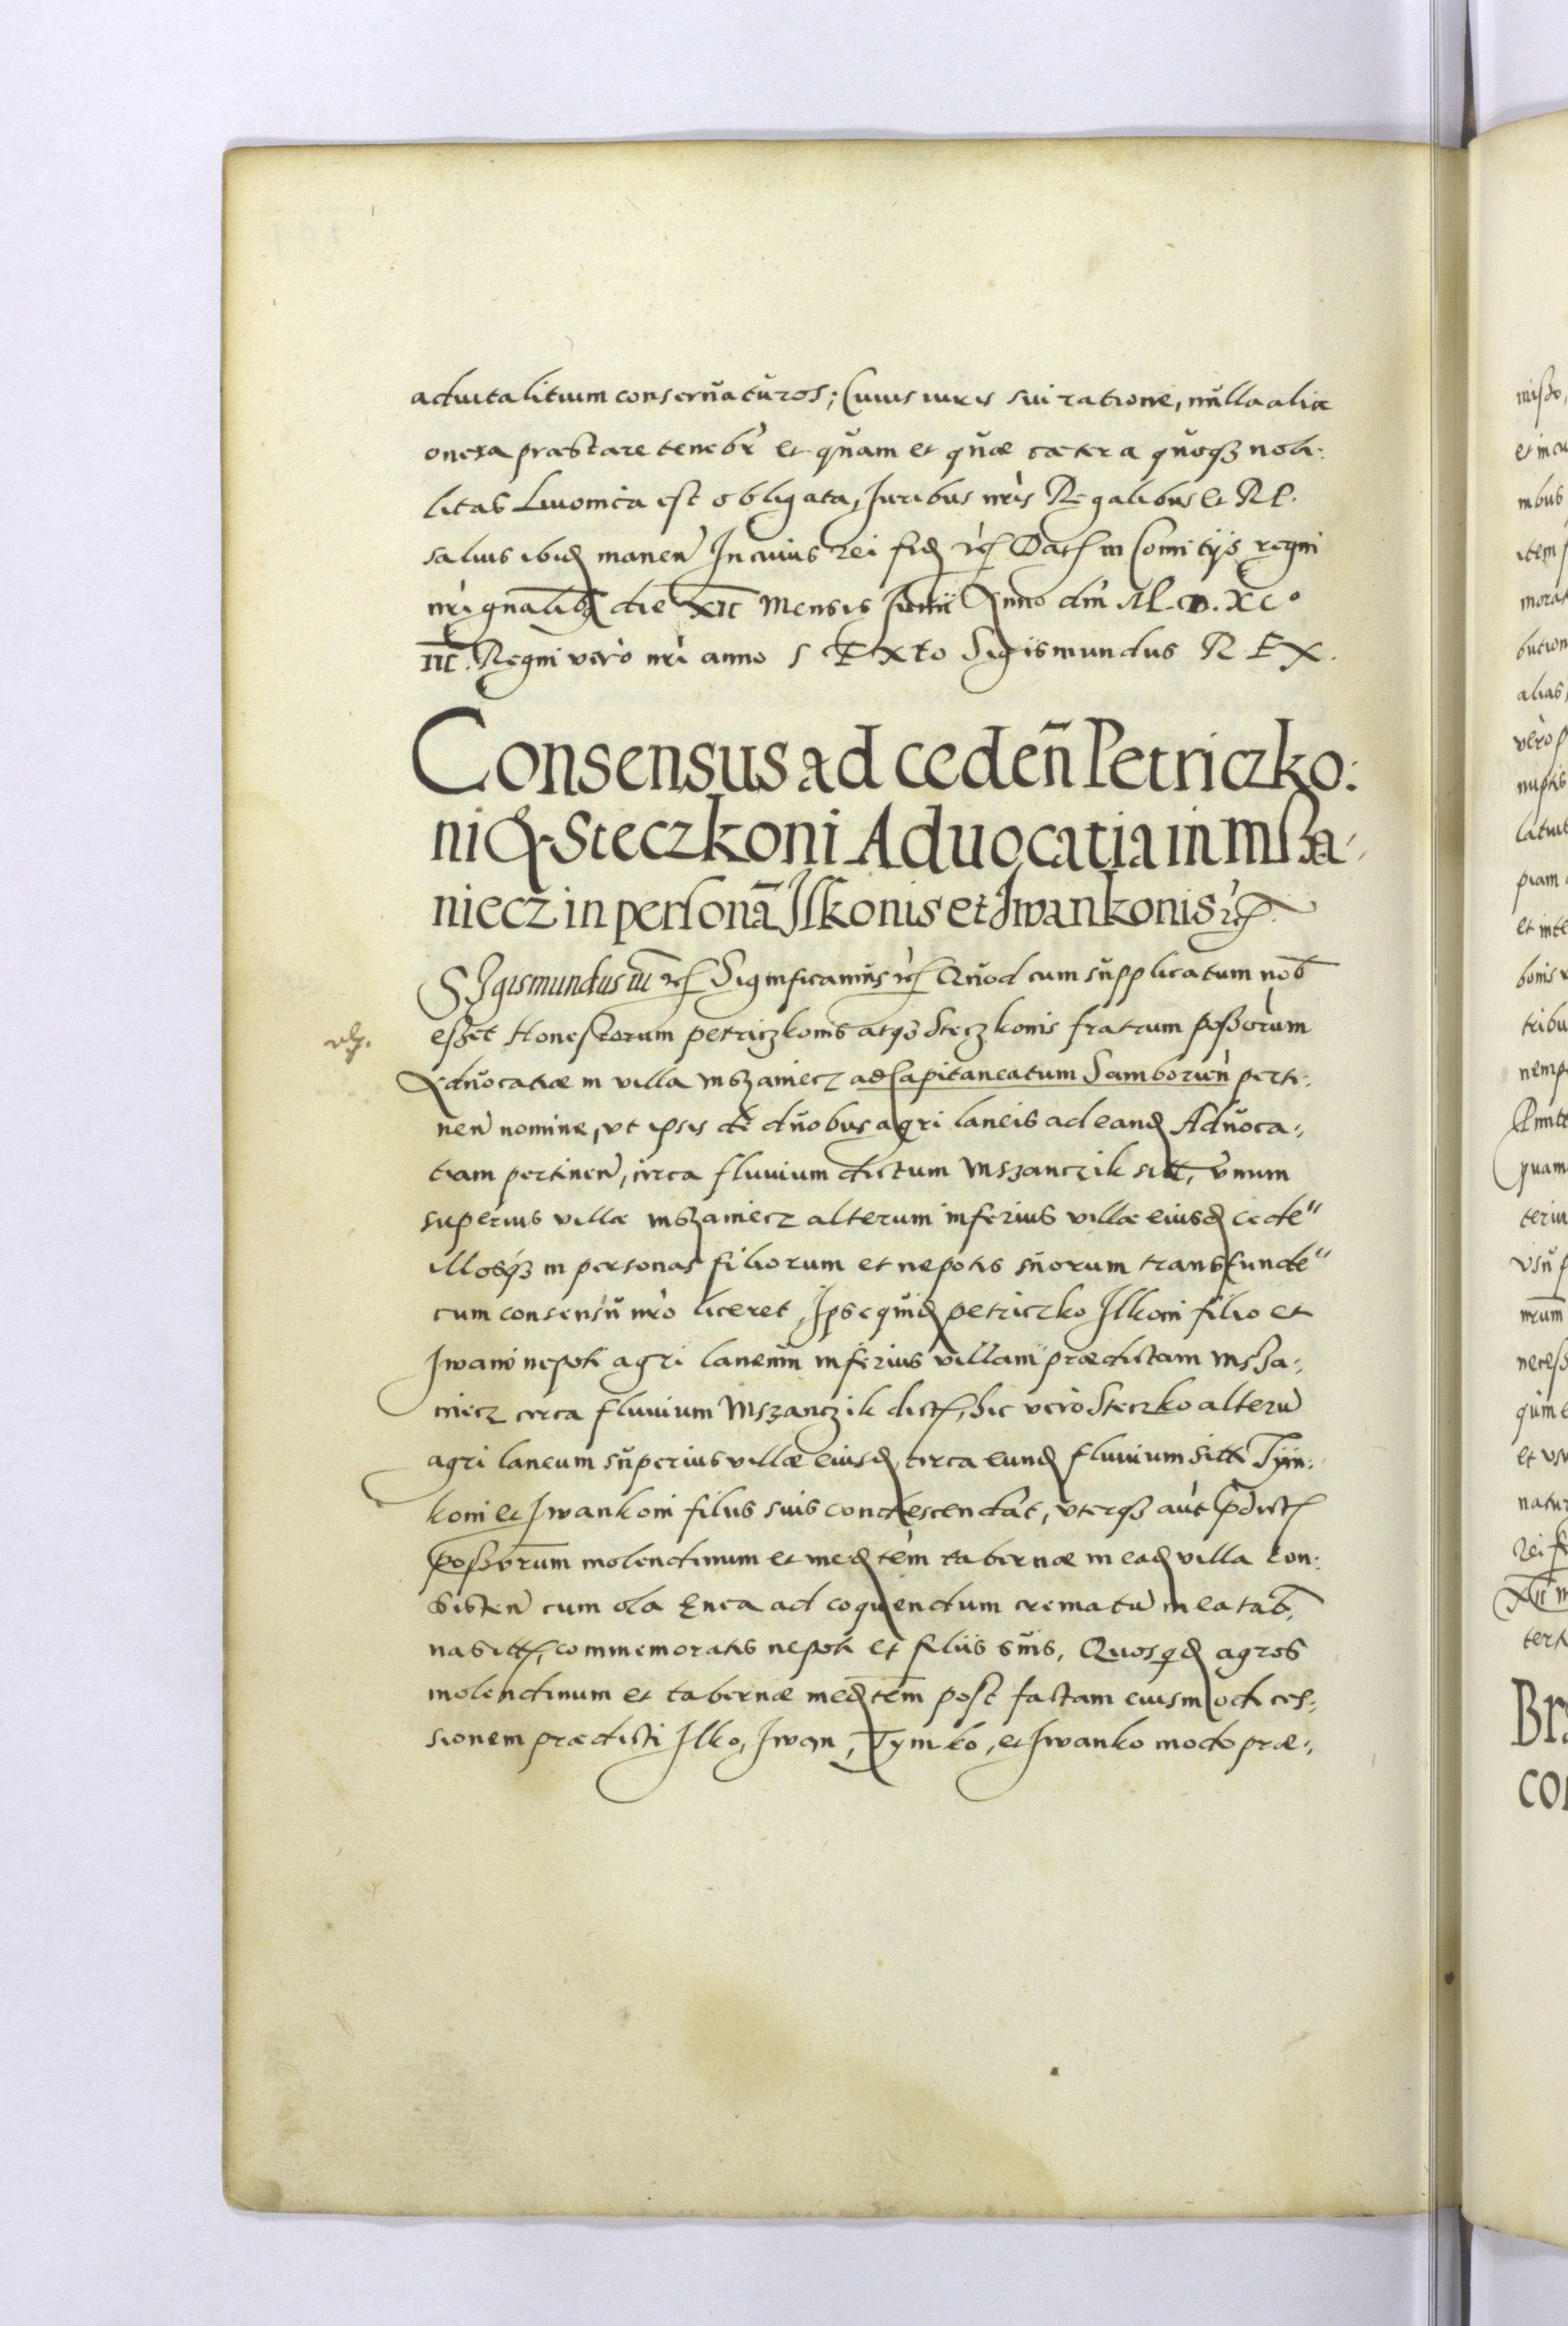 aduitalitium conseruaturos; Cuius iuris sui ratione, nulla alia
onera præstare tenebr et quam et quæ cætera quoqȝ nobi:
litas Liuonica est obligata, Iuribus nris Regalibus et RP.
saluis ibid manen In cuius rei fid etc Dat in Comitijs regni
nri gnalibȝ die XII Mensis Iunii Anno dni M.D.XCº
III. Regni vero nri anno SExto Sigismundus REX.
Consensus ad ceden Petriczko:
ni & Steczkoni Aduocatia in Msza-
niecz in personã Ilkonis et Iwankonis etc.
SIgismundus iii etc Significamus etc Quod cum supplicatum nob
esset Honestorum petriczkonis atqȝ Steczkonis fratrum possorum
Aduocatiæ in villa mszaniecz ad Capitaneatum Samborien perti:
nen nomine, vt ipsis de duobus agri laneis ad eand Aduoca:
tiam pertinen, circa fluuium dictum Mszanczik sitt, vnum
superius villæ mszaniecz alterum inferius villæ eiusd cede"
illosqȝ in personas filiorum et nepotis suorum transfunde"
cum consensu nro liceret, Ipse quid petriczko Ilkoni filio et
Iwani nepoti agri laneum inferius villam prædictam Mssa:
niecz circa fluuium Mszanczik dict, hic vero Steczko alteru
agri laneum superius villæ eiusd, circa eund fluuium sitt Tym:
koni et Iwankoni filiis suis condescendat, vterqȝ aut pdict
possorum molendinum et medtem tabernæ in ead villa con:
sisten cum olla Enea ad coquendum crematu in ea tab.
na sitt, commemoratis nepoti et filiis suis. Quosqd agros
molendinum et tabernæ medtem post factam eiusmodi ces:
sionem prædicti Ilko, Iwan, Tymko, et Iwanko modo præ: